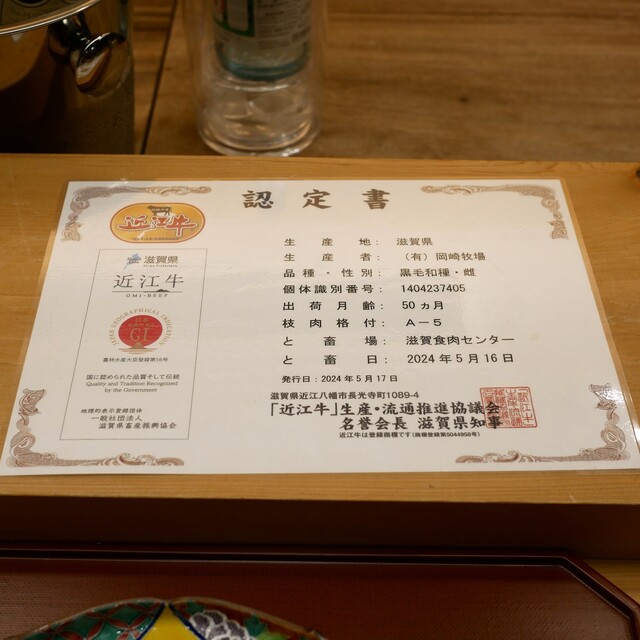 認定書
近江牛
滋賀県
近江牛
OMI-BEEF
JAPAN GEOGRAPHICAL INDICATION
GI
農林水産大臣登録第56号
国に認められた品質そして伝統
Quality and Tradition Recognized
by the Government
地理的表示登録団体
一般社団法人
滋賀県畜産振興協会
生産地： 滋賀県
生産者： （有）岡崎牧場
品種・性別： 黒毛和種・雌
個体識別番号： 1404237405
出荷月齢： 50ヵ月
枝肉格付： A－5
と畜場： 滋賀食肉センター
と畜日： 2024年5月16日
発行日：2024年5月17日
滋賀県近江八幡市長光寺町1089-4
「近江牛」生産・流通推進協議会
名誉会長 滋賀県知事
近江牛は登録商標です（商標登録第5044958号）